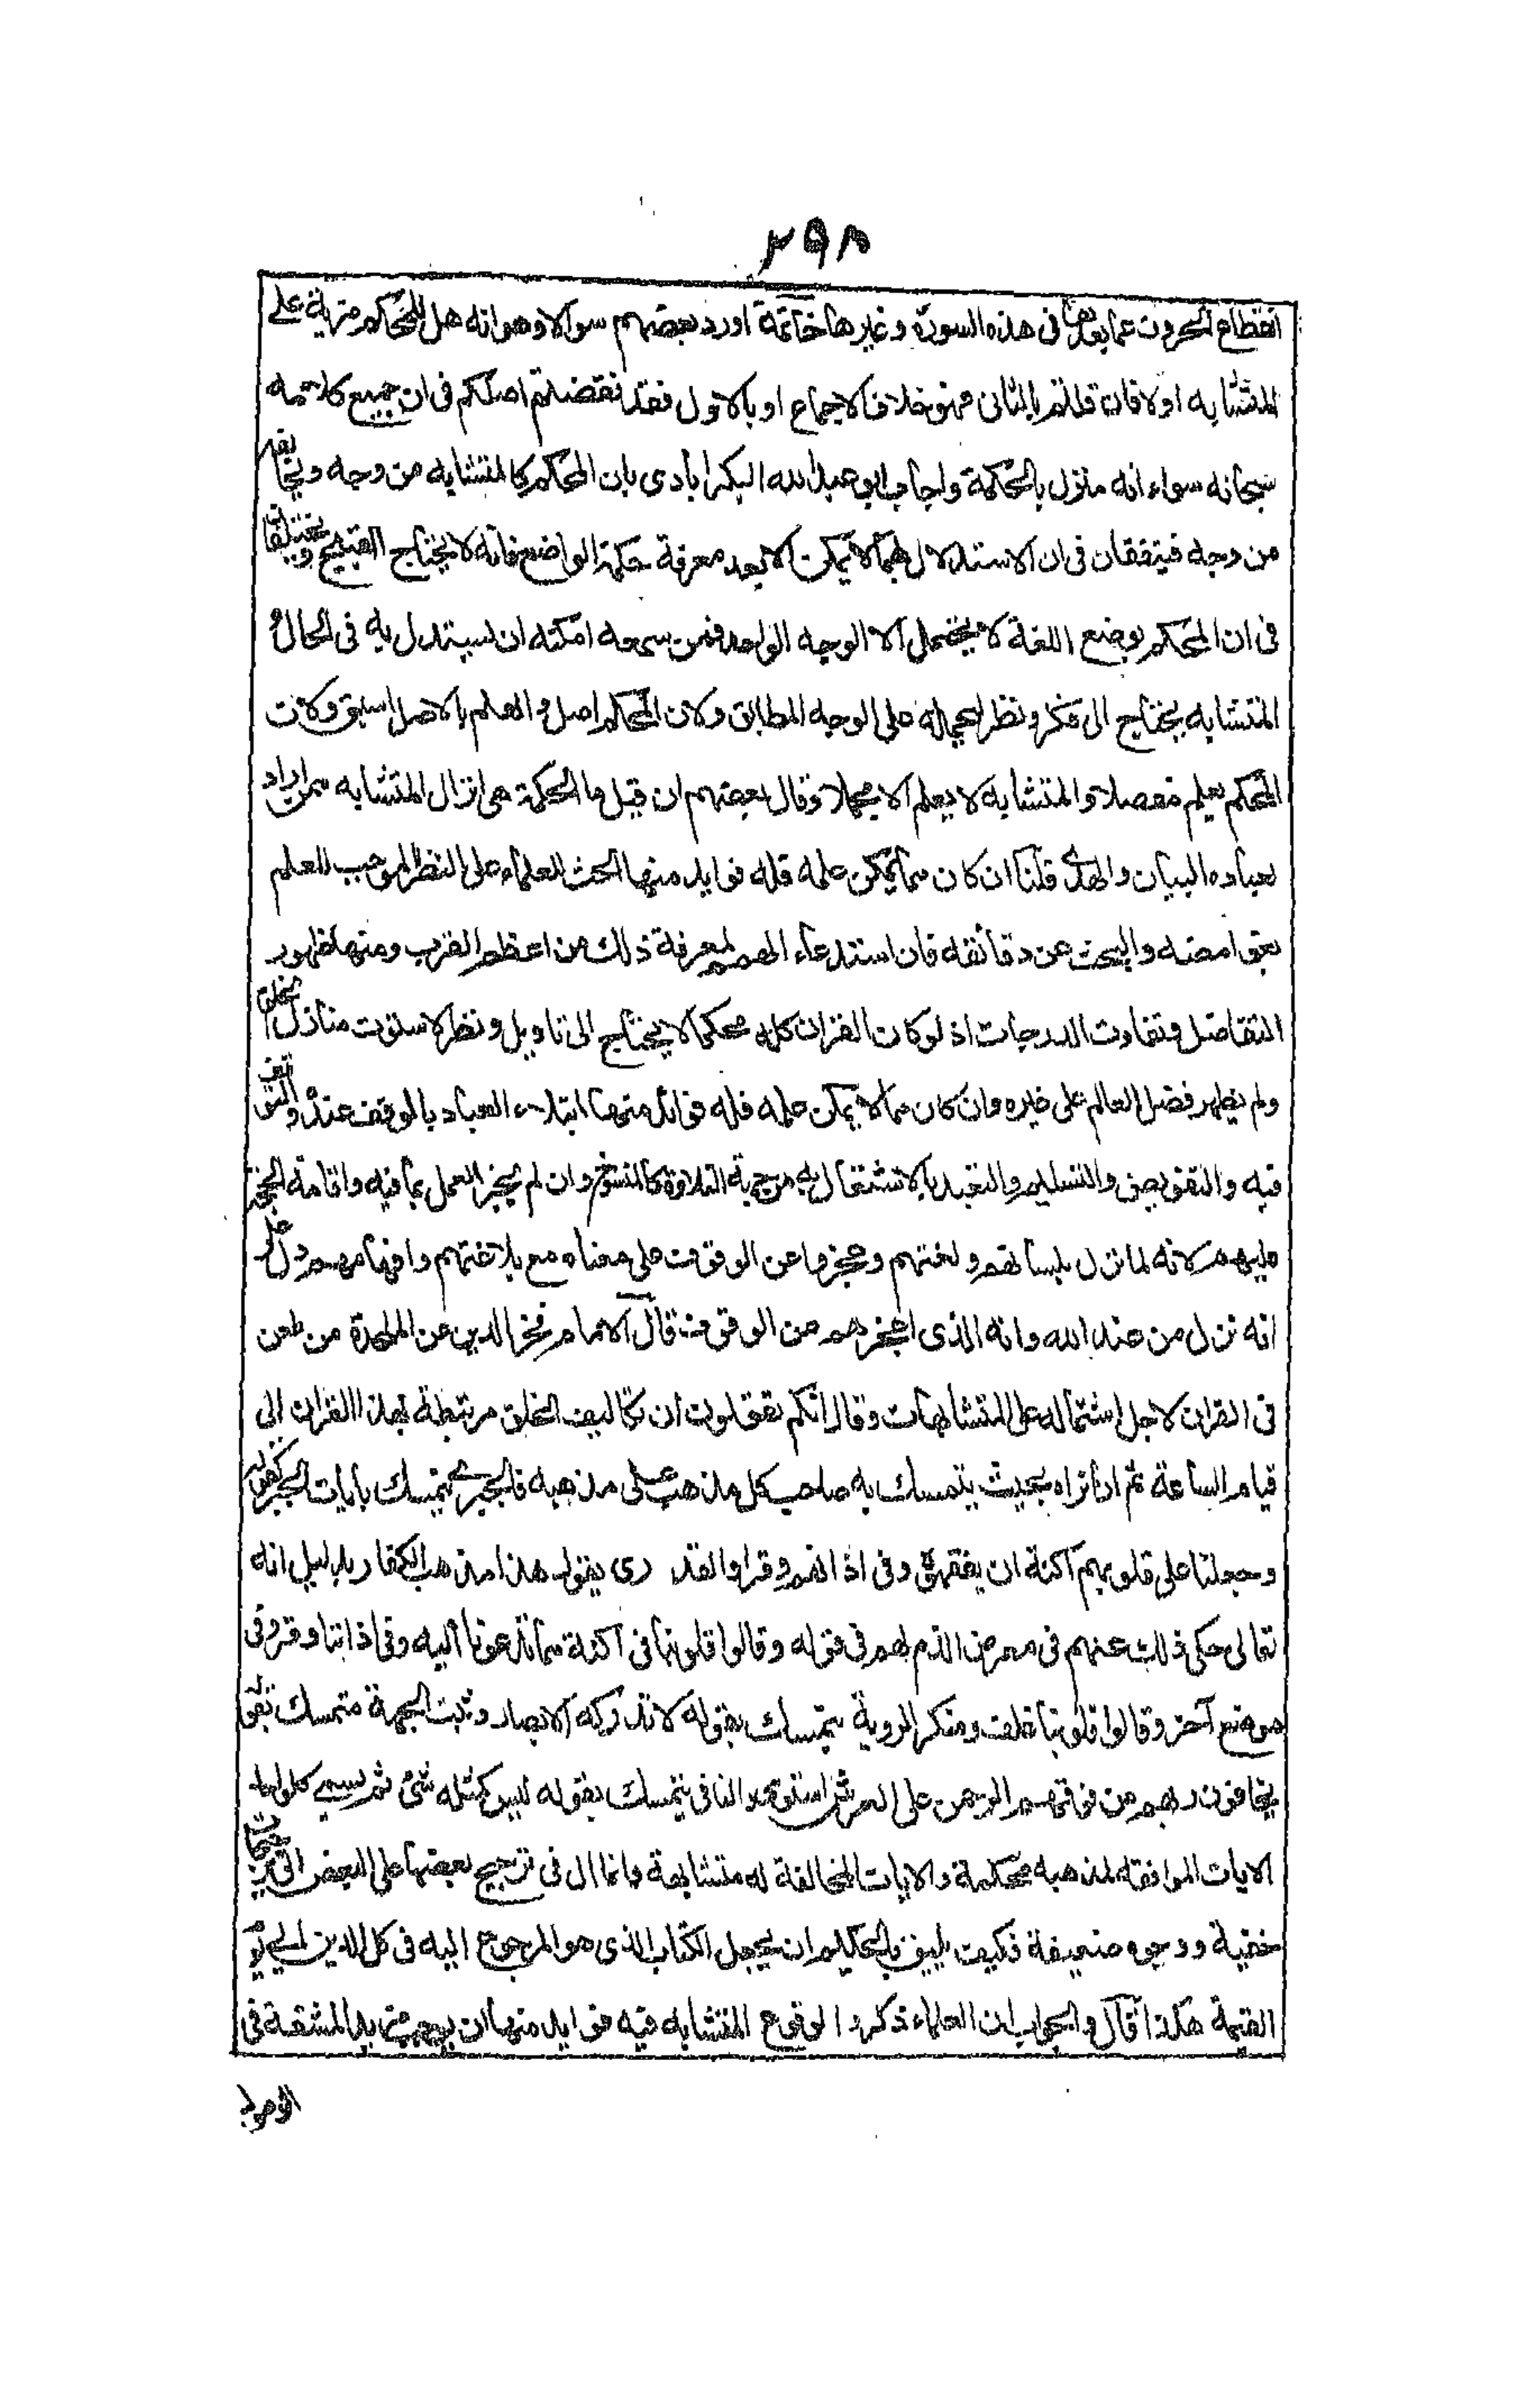 ٢٩٨
انقطاع الحروف عما بعدها فى هذه السورة وغيرها خاتمة اورد بعضهم سوالا وهو انه هل للمحكم مزية على
المتشابه اولا فان قلتم بالثانى فهو خلاف الاجماع او بالاول فقد نقضتم اصلكم فى ان جميع كلامه
سبحانه سواء انه منزل بالحكمة واجاب ابو عبد الله البكرابادى بان المحكم كالمتشابه من وجه ويخالفه
من وجه فيتفقان فى ان الاستدلال بهما لا يمكن الا بعد معرفة حكمة الواضع فانه لا يختاج القبيح ويختلفان
فى ان المحكم بوضع اللغة لا يحتمل الا الوجه الواحد فمن سمعه امكنه ان يستدل به فى الحال و
المتشابه يحتاج الى فكر ونظر ليحمله على الوجه المطابق ولان المحكم اصل والعلم بالاصل اسبق ولان
المحكم يعلم مفصلا والمتشابه لا يعلم الا مجملا وقال بعضهم ان قيل ما الحكمة فى انزال المتشابه ممن اراد
لعباده البيان والهدى قلنا ان كان مما يمكن علمه فله فوايد منها الحث للعلماء على النظر الموجب للعلم
بغوامضه والبحث عن دقائقه فان استدعاء الهمم لمعرفة ذلك من اعظم القرب ومنها ظهور
التفاضل وتفاوت الدرجات اذ لو كان القران كله محكما لا يحتاج الى تاويل ونظر لاستوت منازل الخلق
ولم يظهر فضل العالم على غيره وان كان مما لا يمكن علمه فله فوائد منها ابتلاء العباد بالوقف عنده والتوقف
فيه والتفويض والتسليم والتعبد بالاشتغال به من جهة التلاوة كالمنسوخ وان لم يجز العمل بما فيه واقامة الحجة
عليهم لانه لما نزل بلسانهم ولغتهم وعجزوا عن الوقوف على معناه مع بلاغتهم وافهامهم دل على
انه نزل من عند الله وانه الذى اعجزهم من الوقوف قال الامام فخر الدين من الملحدة من طعن
فى القران لاجل اشتماله على المتشابهات وقال انكم تقولون ان تكاليف الخلق مرتبطة بهذا القران الى
قيام الساعة ثم انا نراه بحيث يتمسك به صاحب كل مذهب على مذهبه فالجبرى يتمسك بايات الجبر كقوله
وجعلنا على قلوبهم اكنة ان يفقهوه وفى اذانهم وقرا والقدرى يقول هذا مذهب الكفار بدليل انه
تعالى حكى ذلك عنهم فى معرض الذم لهم فى قوله وقالوا قلوبنا فى اكنة مما تدعونا اليه وفى اذاننا وقر وفى
موضع آخر وقالوا قلوبنا غلف ومنكر الروية يتمسك بقوله لا تدركه الابصار ومثبت الجهة متمسك بقوله
يخافون ربهم من فوقهم الرحمن على العرش استوى والنافى يتمسك بقوله ليس كمثله شئ ثم يسمى كل واحد
الايات الموافقة لمذهبه محكمة والايات المخالفة له متشابهة وانما ال فى ترجيح بعضها على البعض الى ترجيحات
خفية ووجوه ضعيفة فكيف يليق بالحكيم ان يجعل الكتاب الذى هو المرجوع اليه فى كل الدين الى يوم
القيمة هكذا قال والجواب ان العلماء ذكروا لوقوع المتشابه فيه فوايد منها ان يوجب مزيد المشقة فى
الوصول